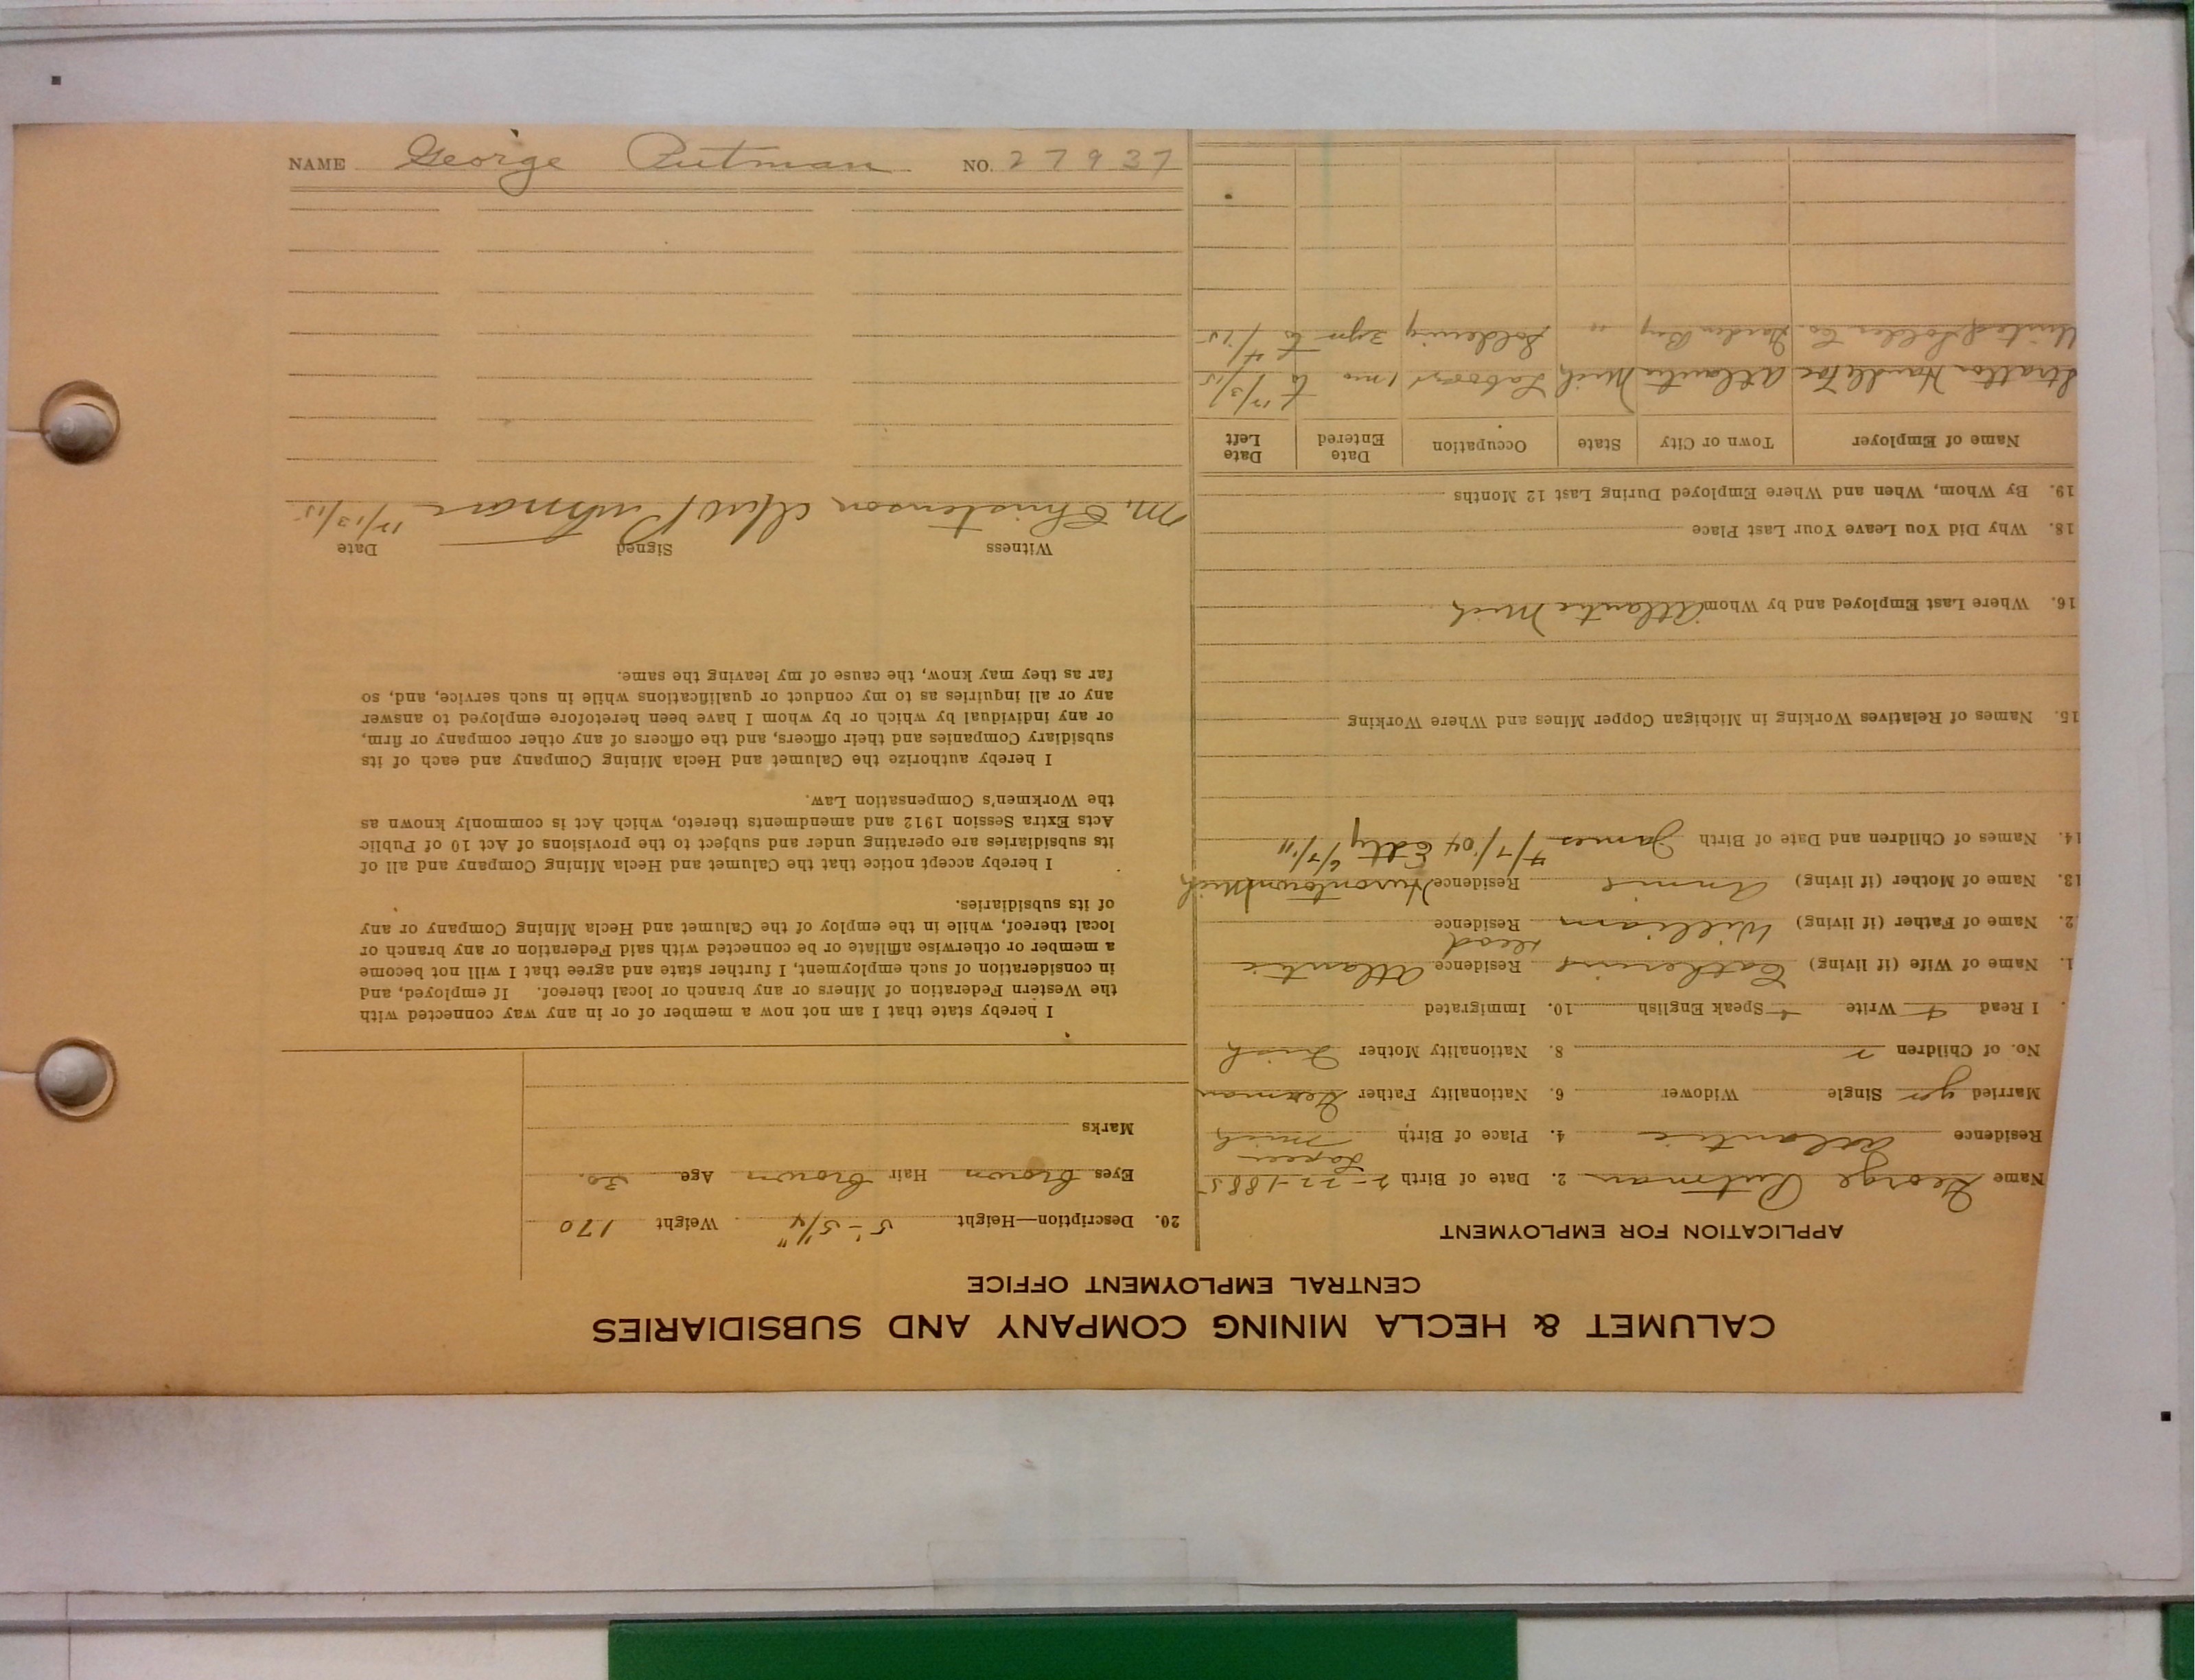 NAME George Putman NO. 27937
CALUMET & HECLA MINING COMPANY AND SUBSIDIARIES
CENTRAL EMPLOYMENT OFFICE
APPLICATION FOR EMPLOYMENT
Name George Putman 2. Date of Birth 2-22-1885
Residence Atlantic 4. Place of Birth Lapeer Mich
Married yes Single Widower 6. Nationality Father German
No. of Children 2 8. Nationality Mother Irish
I Read + Write + Speak English 10. Immigrated
1. Name of Wife (if living) Catherine Residence Atlantic
2. Name of Father (if living) William dead Residence
13. Name of Mother (if living) Annie Residence Hurontown Mich
14. Names of Children and Date of Birth James 4/7/04 6/7/11
15. Names of Relatives Working in Michigan Copper Mines and Where Working
16. Where Last Employed and by Whom Atlantic Mich
18. Why Did You Leave Your Last Place
19. By Whom, When and Where Employed During Last 12 Months
Name of Employer Town or City State Occupation Date Entered Date Left
Stratton Handle Atlantic Mich Labor 1 mo to 12/3/15
United Co Garden Bay " Soldering 3 yrs to 4/15
20. Description—Height 5'-5 1/4" Weight 170
Eyes Brown Hair Brown Age 30.
Marks
I hereby state that I am not now a member of or in any way connected with
the Western Federation of Miners or any branch or local thereof. If employed, and
in consideration of such employment, I further state and agree that I will not become
a member or otherwise affiliate or be connected with said Federation or any branch or
local thereof, while in the employ of the Calumet and Hecla Mining Company or any
of its subsidiaries.
I hereby accept notice that the Calumet and Hecla Mining Company and all of
its subsidiaries are operating under and subject to the provisions of Act 10 of Public
Acts Extra Session 1912 and amendments thereto, which Act is commonly known as
the Workmen's Compensation Law.
I hereby authorize the Calumet and Hecla Mining Company and each of its
subsidiary Companies and their officers, and the officers of any other company or firm,
or any individual by which or by whom I have been heretofore employed to answer
any or all inquiries as to my conduct or qualifications while in such service, and, so
far as they may know, the cause of my leaving the same.
Witness Signed Date
M. Christenson Putman 12/13/15